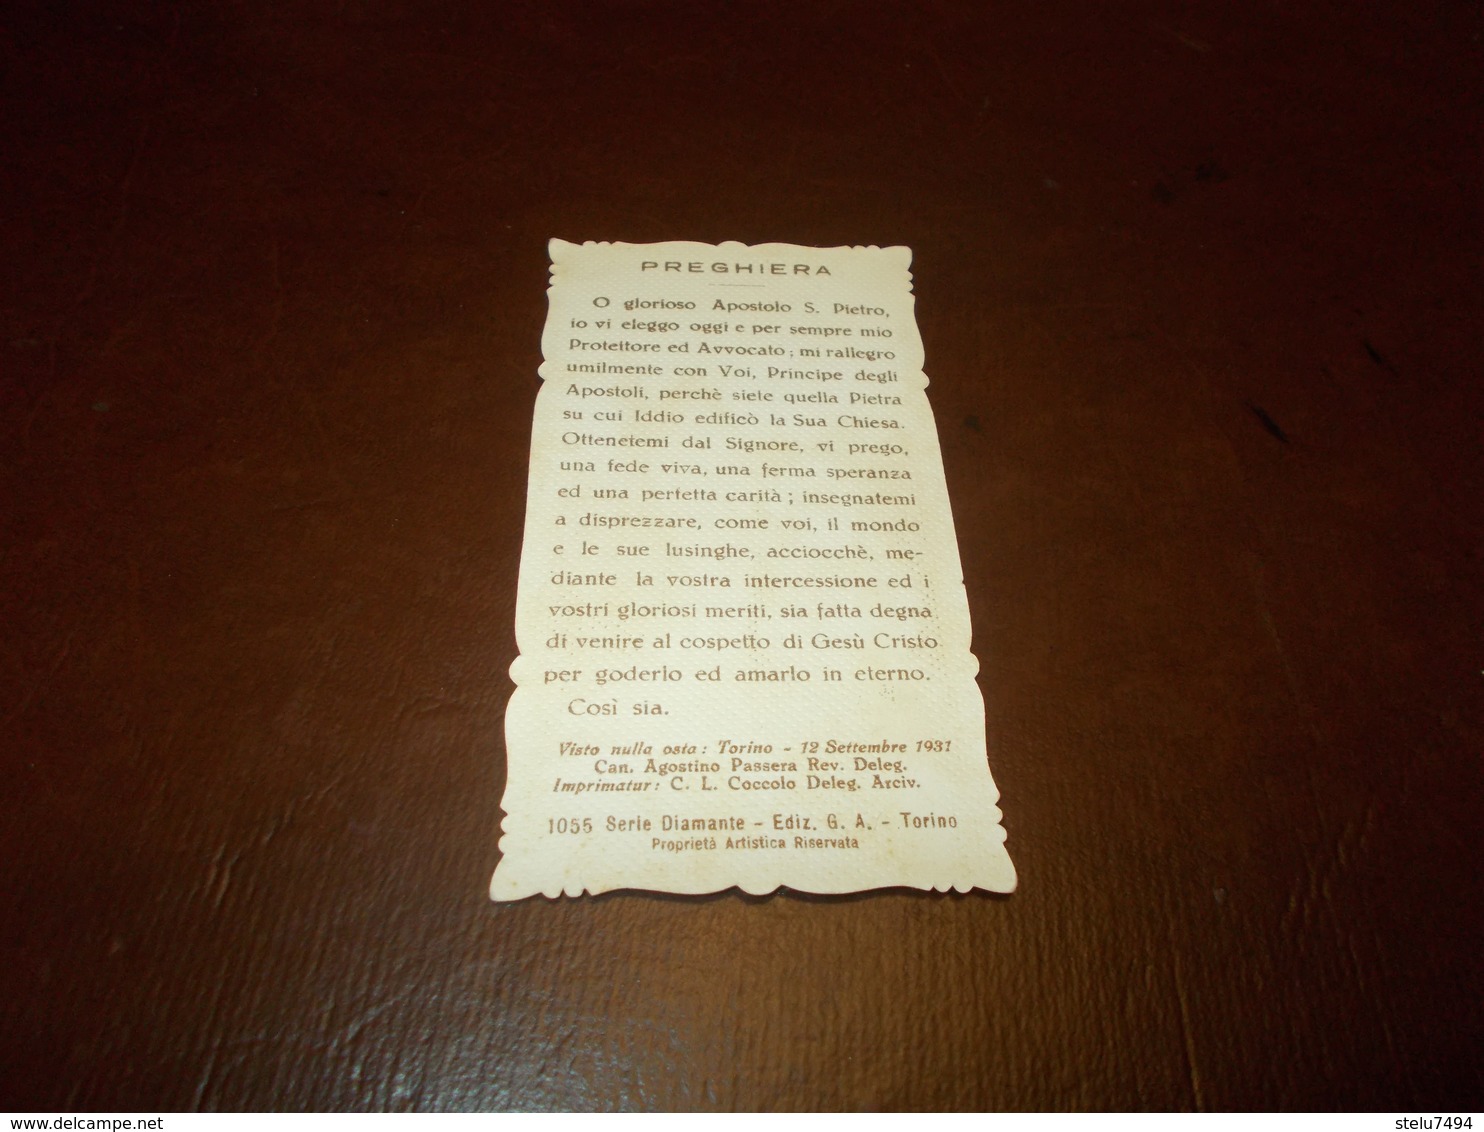 PREGHIERA
O glorioso Apostolo S. Pietro,
io vi eleggo oggi e per sempre mio
Protettore ed Avvocato; mi rallegro
umilmente con Voi, Principe degli
Apostoli, perchè siete quella Pietra
su cui Iddio edificò la Sua Chiesa.
Ottenetemi dal Signore, vi prego,
una fede viva, una ferma speranza
ed una perfetta carità; insegnatemi
a disprezzare, come voi, il mondo
e le sue lusinghe, acciocchè, me-
diante la vostra intercessione ed i
vostri gloriosi meriti, sia fatta degna
di venire al cospetto di Gesù Cristo
per goderlo ed amarlo in eterno.
Così sia.
Visto nulla osta: Torino - 12 Settembre 1931
Can. Agostino Passera Rev. Deleg.
Imprimatur: C. L. Coccolo Deleg. Arciv.
1055 Serie Diamante - Ediz. G. A. - Torino
Proprietà Artistica Riservata
stelu7494